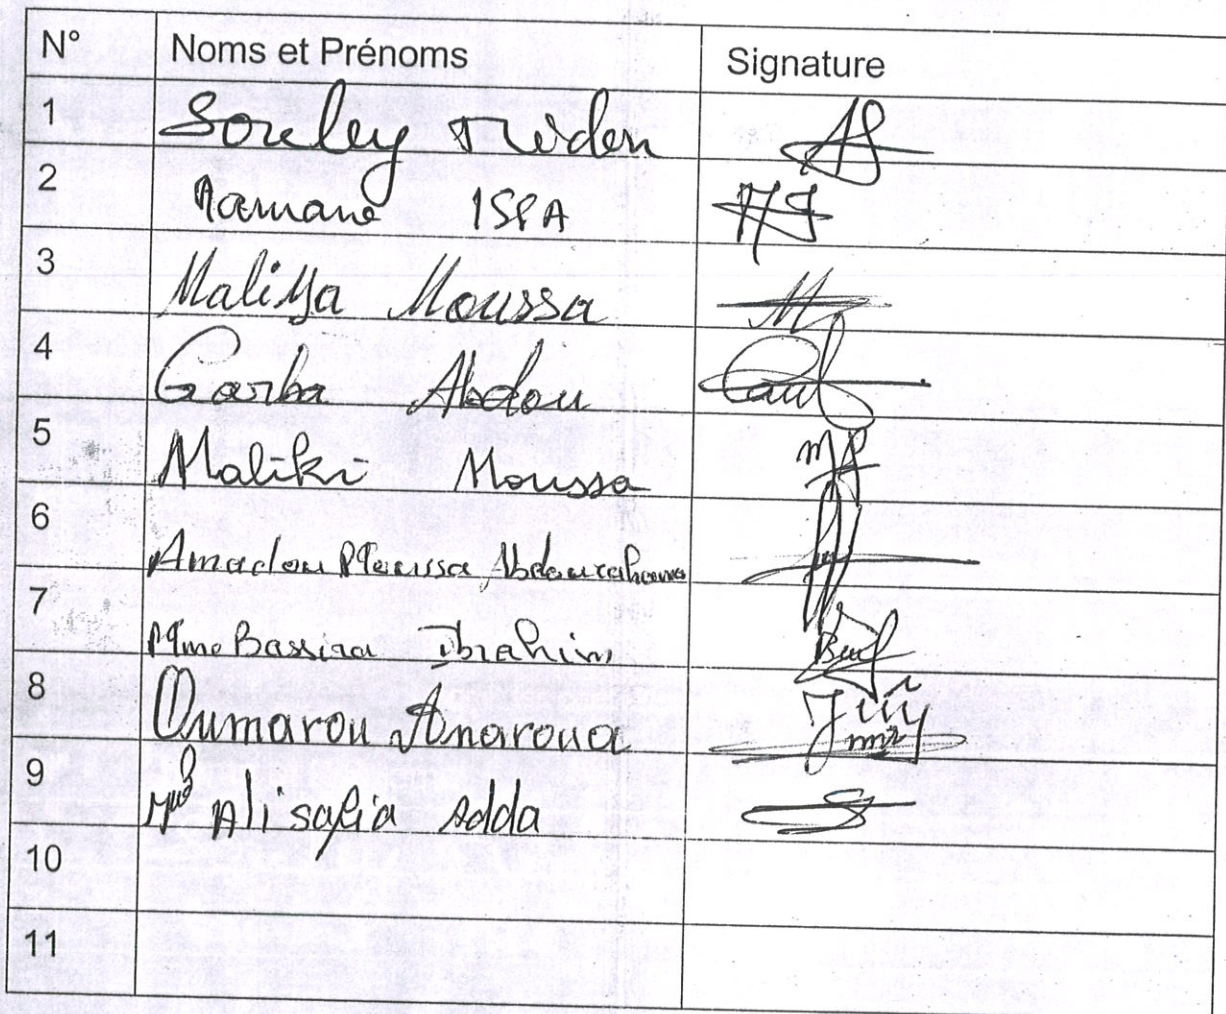 N° Noms et Prénoms Signature
1 Souley
2 ISPA
3 Moussa
4 Garba Abdou
5 Maliki Moussa
6 Amadou Moussa Abdourahamane
7 Mme Bassira Ibrahim
8 Oumarou Anaroua
9 Ali safia Adda
10
11